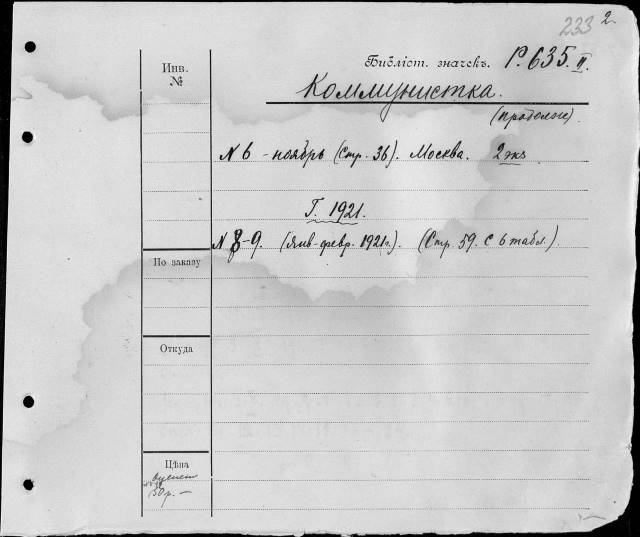 233 2.
Инв.
№
Библіот. значекъ. Р. 635. II.
Коммунистка.
(продолже)
N 6 - ноябрь (Стр. 36). Москва. 2 экз
Г. 1921.
N 8-9. (Янв-февр. 1921 г.). (Стр. 59. с 6 табл.)
По заказу
Откуда
Цѣна
50 р. —